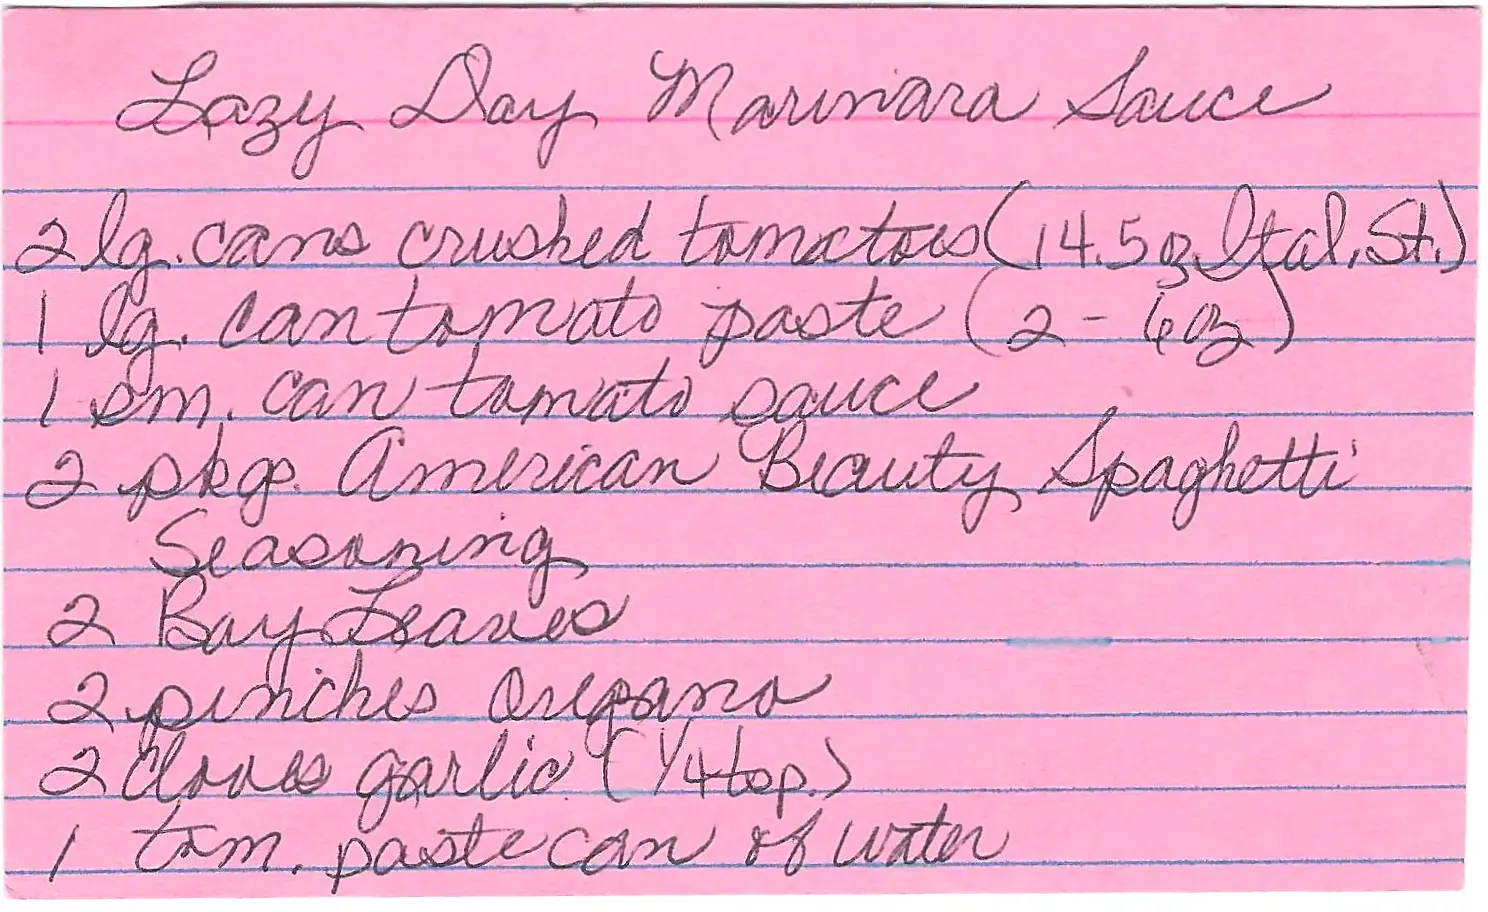 Lazy Day Marinara Sauce
2 lg. cans crushed tomatoes (14.5 oz Ital. St.)
1 lg. can tomato paste (2 - 6 oz)
1 sm. can tomato sauce
2 pkgs. American Beauty Spaghetti
Seasoning
2 Bay Leaves
2 pinches Oregano
2 cloves garlic (1/4 tsp.)
1 tom. paste can of water